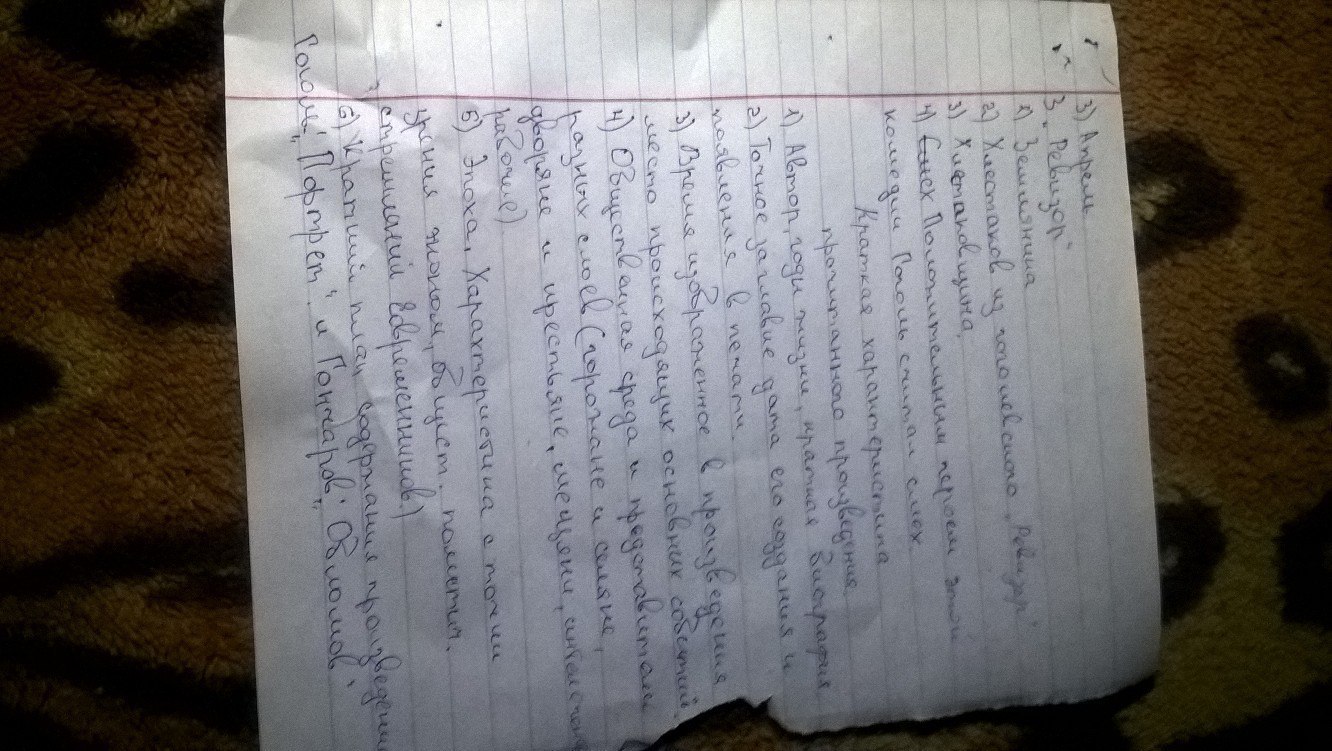 3) Апрель
3. „Ревизор"
1) Земляника
2) Хлестаков из гоголевского „Ревизор"
3) Хлестаковщина.
4) Смех Положительным героем этой
комедии Гоголь считал смех.
Краткая характеристика
прочитанного произведения.
1) Автор, годи жизни, краткая биография.
2) Точное заглавие дата его создания и
появления в печати.
3) Время изображенное в произведения
место происходящих основних событий.
4) Общественная среда и представители
разных слоев (горожане и селяне,
дворяне и крестьяне, мещяни,
рабочие)
5) Эпоха. Характеристика с точки
зрения эконом, общест. политич.
стремланий современников.)
6) Краткий план содержания произведения
Гоголь „Портрет". и Гончаров „Обломов"